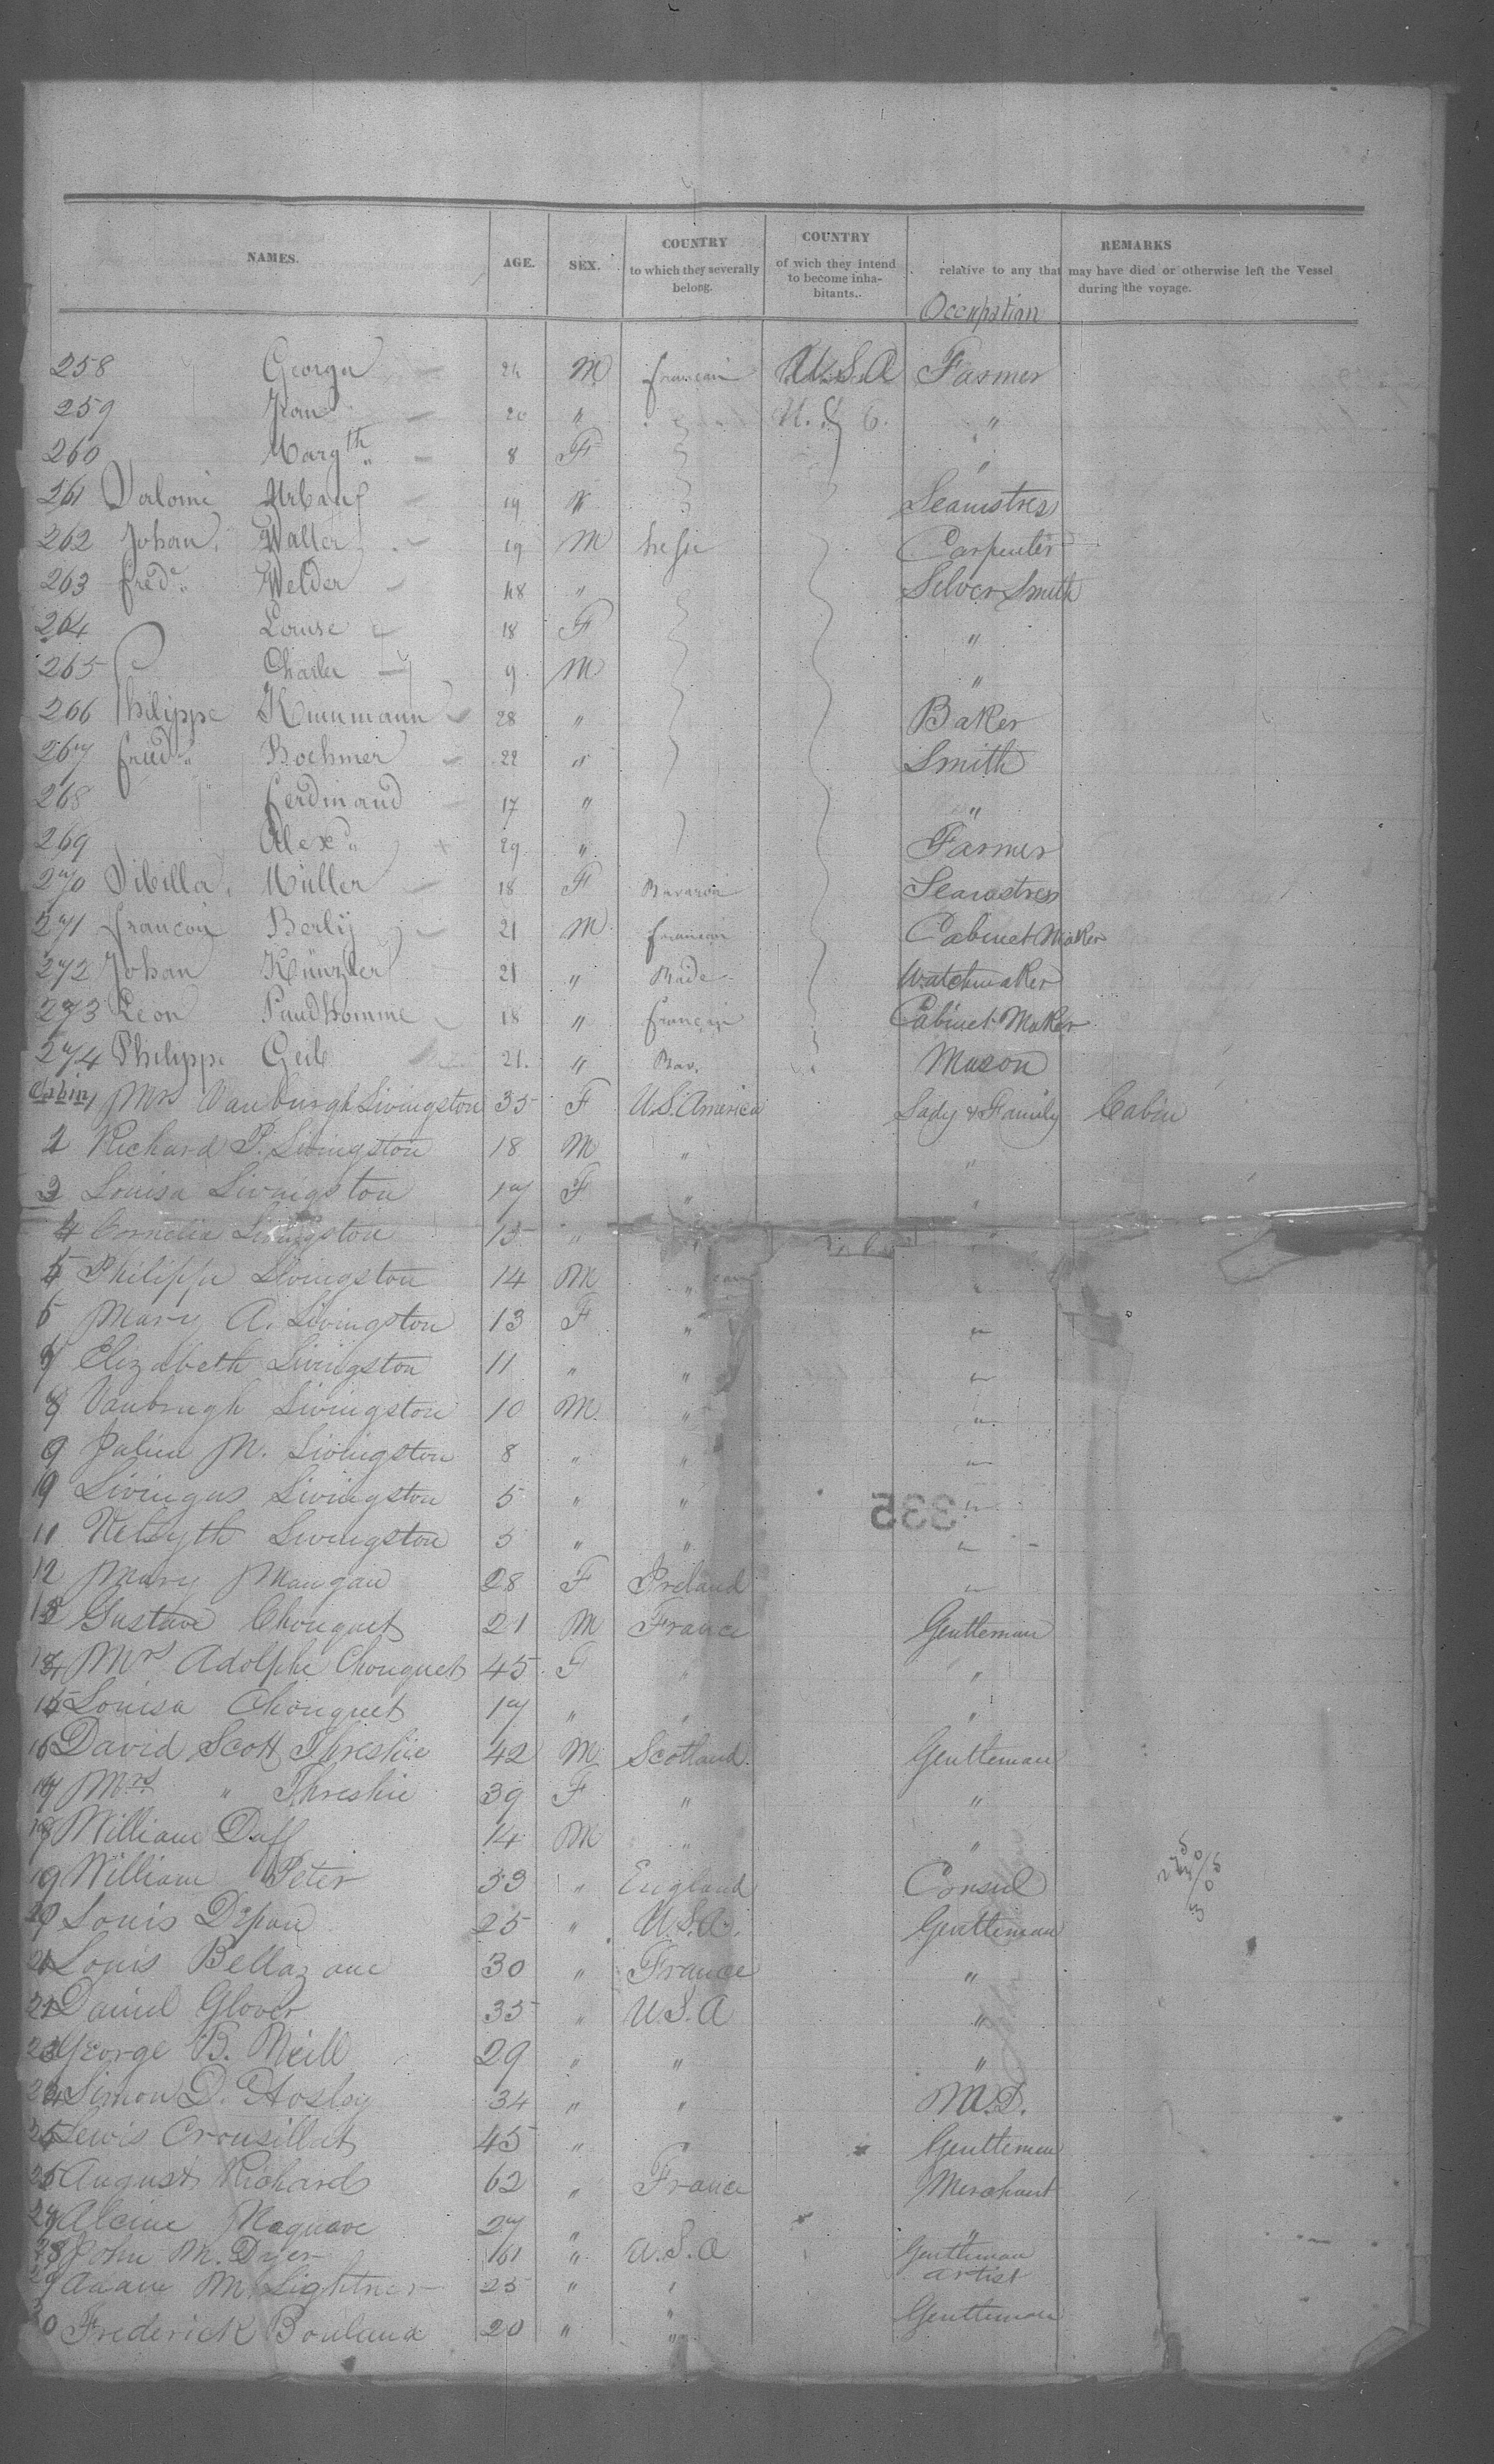 NAMES. AGE. SEX. COUNTRY to which they severally belong. COUNTRY of wich they intend to become inhabitants. REMARKS relative to any that may have died or otherwise left the Vessel during the voyage.
Occupation
258 George 24 M francais U.S.A Farmer
259 Jean 20 " U. S "
260 Margth 8 F "
261 Salomi Urban 19 " Seamstress
262 Johan Walter 19 M hesse Carpenter
263 fred. Welder 48 " Silver Smith
264 Louise 18 F "
265 Charles 9 M "
266 Philippe 28 " Baker
267 fried. Boehmer 22 " Smith
268 " ferdinand 17 " "
269 Alex. 29 " Farmer
270 Sibilla Müller 18 F Bavaria Seamstress
271 francois Berly 21 M francais Cabinet Maker
272 Johan Künzler 21 " Bade Watchmaker
273 Leon Prudhomme 18 " francais Cabinet Maker
274 Philippe Geib 21. " Bav. Mason
Cabin 1 Mrs Vanburgh Livingston 35 F U.S. America Lady & Family Cabin
2 Richard P. Livingston 18 M " "
3 Louisa Livingston 17 F " "
4 Cornelia Livingston 15 " "
5 Philippe Livingston 14 M "
6 Mary A. Livingston 13 F " "
7 Elizabeth Livingston 11 " " "
8 Vanbrugh Livingston 10 M. " "
9 Julien M. Livingston 8 " " "
10 Livingus Livingston 5 " " "
335
11 Livingston 3 " " "
12 Mary Mangan 28 F Ireland "
13 Gustave Chouquet 21 M France Gentleman
14 Mrs Adolphe Chouquet 45 F " "
15 Louisa Chouquet 17 " " "
16 David Scott Threshie 42 M Scotland Gentleman
17 Mrs " Threshie 39 F " "
18 William Duff 14 M " "
19 William Peter 53 " England Consul
20 Louis Depau 25 " U.S.A. Gentleman
21 Louis 30 " France "
22 Daniel Glover 35 " U.S.A "
23 George B. Neill 29 " " "
24 Simon D. Hosley 34 " " M.D.
25 Lewis Crousillat 45 " " Gentleman
26 August Richard 62 " France Merchant
27 27 " "
28 John M. Dyer 61 " U.S.A Gentleman
29 Adam M. Lightner 25 " " artist
30 Frederick 20 " " Gentleman